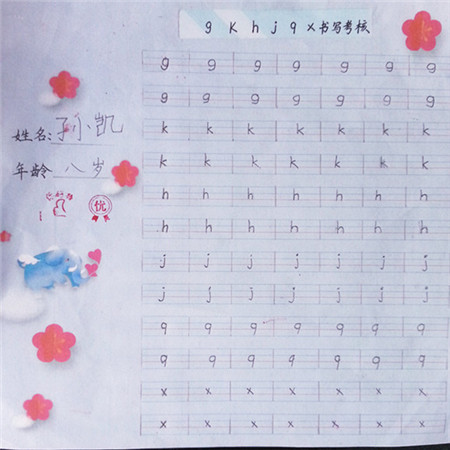 g k h j q x 书写考核
g g g g g g g
g g g g g g g
姓名:孙小凯
k k k k k k k
年龄 八岁
k k k k k k k
h h h h h h h
优
h h h h h h h
j j j j j j j
j j j j j j j
q q q q q q q
q q q q q q q
x x x x x x x
x x x x x x x